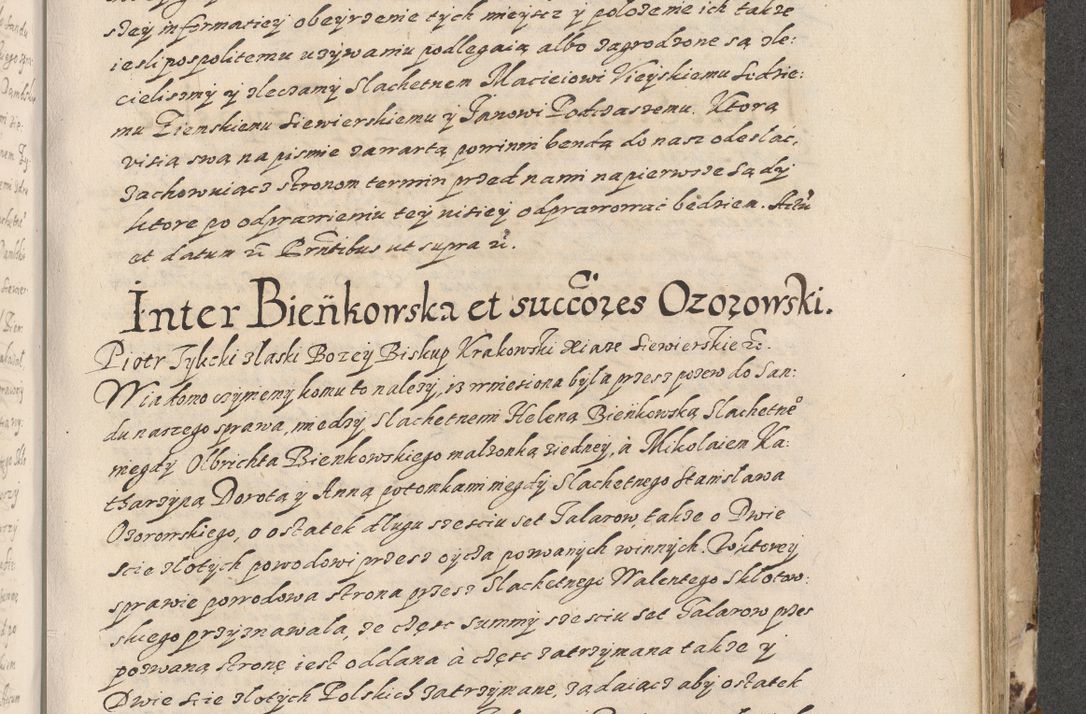 szey informatiey obeyrzenie tych mieysc y położenie ich także
iesli pospolitemu używaniu podlegaią albo zagrodzone są zle:
cielismy y zleczamy Slachetnem Macieiowi Kieyskiemu Sedzie:
mu Ziemskiemu Siewierskiemu y Janowi Podczaszemu. Ktorą
visią swą na pismie zawartą powinni bendą do nasz odeslac,
zachowuiącz stronom termin przed nami na pierwsze sądy
ktore po odprawieniu tey visiey odprawować będziem. Actũ
et datum ꝛc Prñtibus ut supra ꝛc.
Inter Bieńkowska et succõres Ozorowski.
Piotr Tylicki z laski Bozey Biskup Krakowski Xiaze Siewierskie ꝛc.
Wiadomo czynimy komu to nalezy, iz wniesiona byla przesz pozew do San:
du naszego sprawa, miedzy Slachetnemi Heleną Bieńkowską Slachetnº
niegdy Olbrichta Bienkowskiego malzonką ziedney, a Mikolaiem Ka:
tharzyną Dorotą y Anną potomkami niegdy Slachetnego Stanislawa
Ozorowskiego, o ostatek dlugu szesciu set Talarow, także o Dwie
scie zlotych powodowi przesz oycza pozwanych winnych. W ktorey
sprawie powodowa strona przesz Slachetnego Walentego Sklotow:
skiego przyznawala, ze częsc summy szesciu set Talarow przes
pozwaną stronę iest oddana à częsc zatrzymana także y
Dwie scie zlotych Polskich zatrzymane, żądaiącz aby ostatek